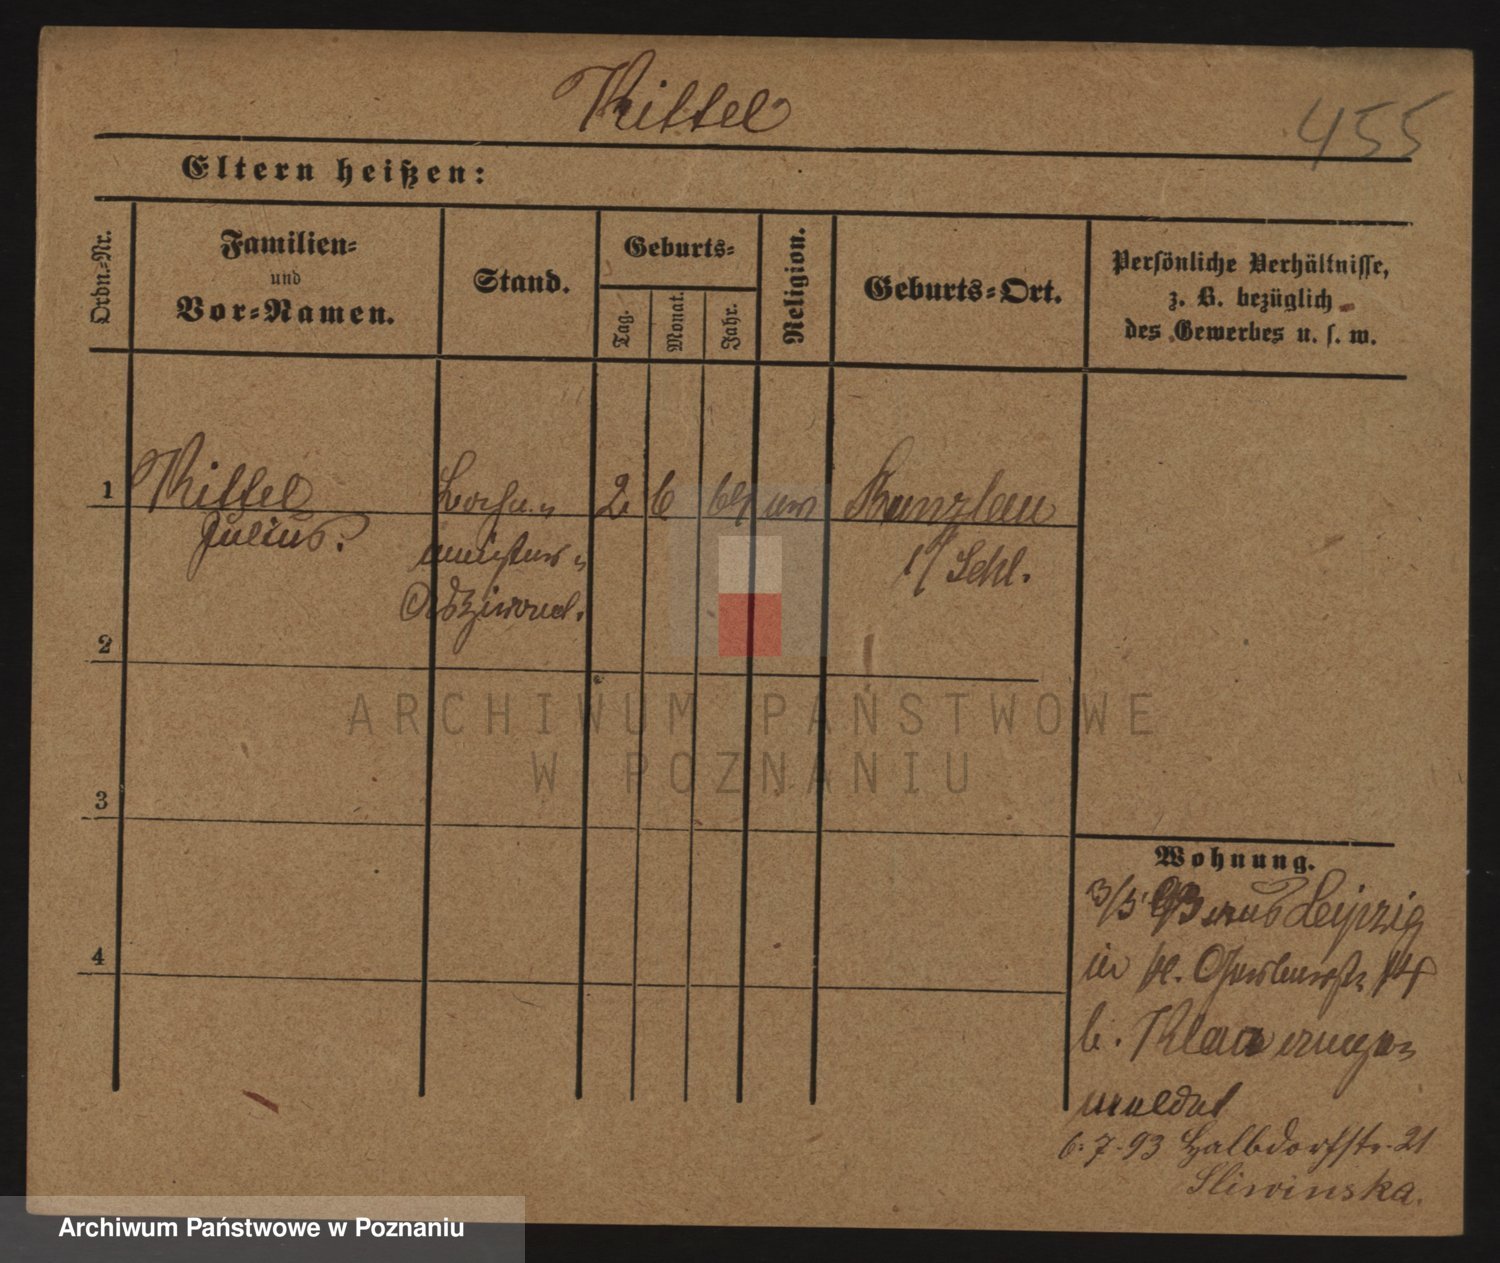 Kittel
455
Eltern heißen:
Ordn.-Nr.
Familien-
und
Vor-Namen.
Stand.
Geburts-
Tag.
Monat.
Jahr.
Religion.
Geburts-Ort.
Persönliche Verhältnisse,
z. B. bezüglich
des Gewerbes u. s. w.
1
Kittel
Julius.
2
6
64
ev
Bunzlau
i/ Schl.
2
3
4
Wohnung.
3/5 93 aus Leipzig
in kl. Gerberstr. 14
b.
gemeldet
6.7.93 Halbdorfstr. 21
Sliwinska.
ARCHIWUM PAŃSTWOWE
W POZNANIU
Archiwum Państwowe w Poznaniu